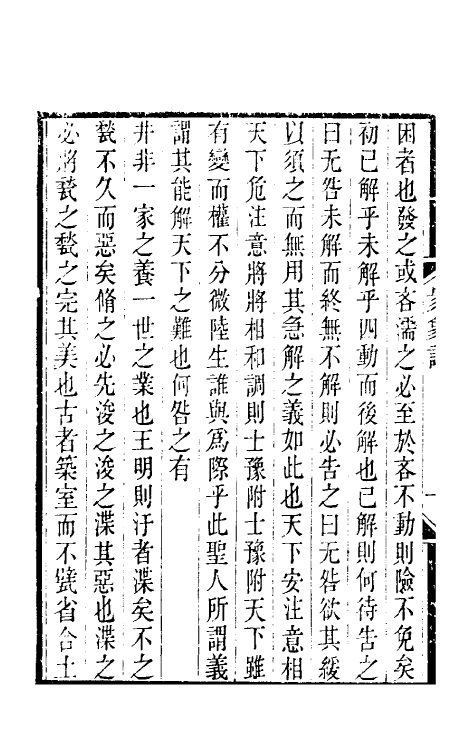 困者也發之或吝濡之必至於吝不動則險不免矣
初已解乎未解乎四動而後解也已解則何待告之
曰无咎未解而終無不解則必告之曰无咎欲其緩
以須之而無用其急解之義如此也天下安注意相
天下危注意將將相和調則士豫附士豫附天下雖
有變而權不分微陸生誰與爲際乎此聖人所謂義
謂其能解天下之難也何咎之有
井非一家之養一世之業也王明則汙者渫矣不之
甃不久而惡矣脩之必先浚之浚之渫其惡也渫之
必將甃之甃之完其美也古者築室而不甓省合土
易象